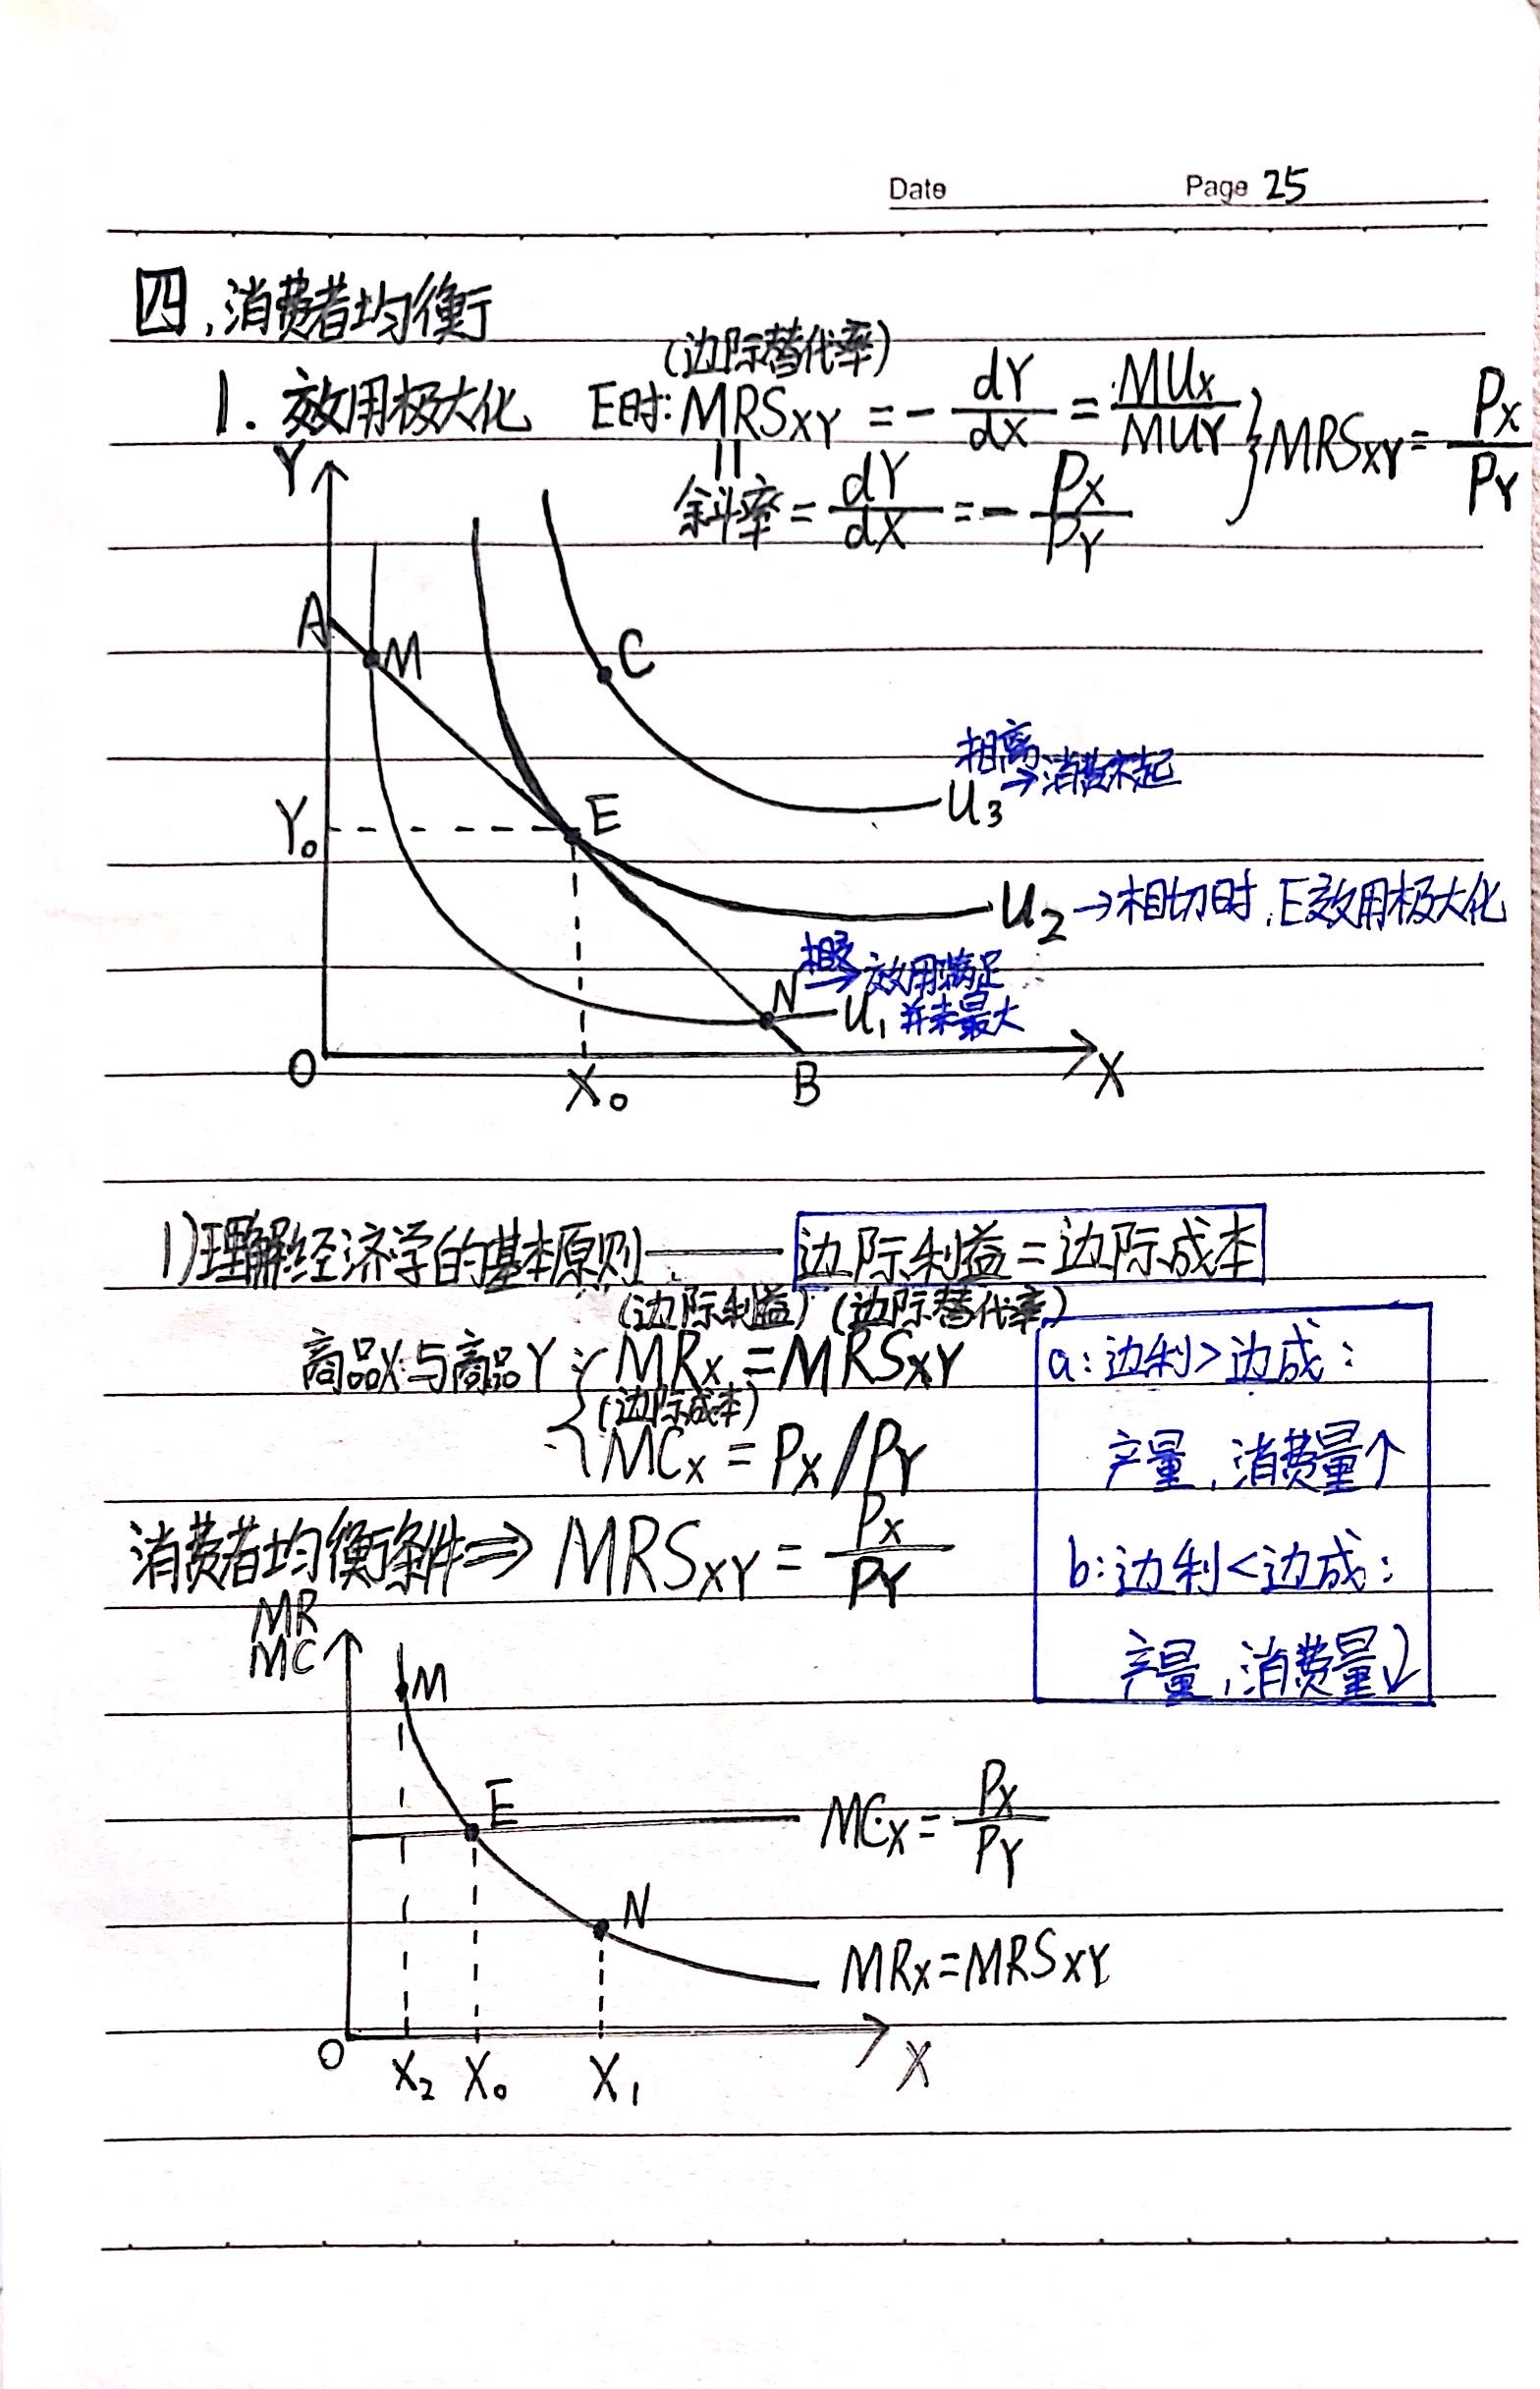 Date Page 25
四、消费者均衡
(边际替代率)
1. 效用极大化 E时: MRSXY = - dY/dX = MUX/MUY } MRSXY = PX/PY
=
斜率 = dY/dX = - PX/PY
Y
A
M
C
相离
→消费不起
U3
Y0
E
U2 →相切时,E效用极大化
N 相交
→效用满足
U1 并未最大
O X0 B X
1)理解经济学的基本原则—— 边际利益=边际成本
(边际利益) (边际替代率)
商品X与商品Y { MRX = MRSXY
(边际成本)
MCX = PX/PY
a: 边利>边成:
产量,消费量↑
b: 边利<边成:
产量,消费量↓
消费者均衡条件⇒ MRSXY = PX/PY
MR
MC
M
E
MCX = PX/PY
N
MRX=MRSXY
O X2 X0 X1 X